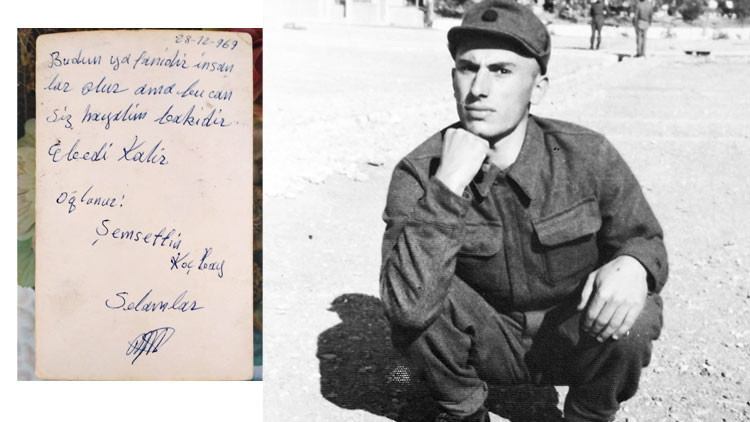 28-12-969
Budun ya fanidir insan
lar olur ama bu can
siz hayalim bakidir.
Ebedi Kalir
oğlunuz!
Şemsettin
Koçbay
Selamlar